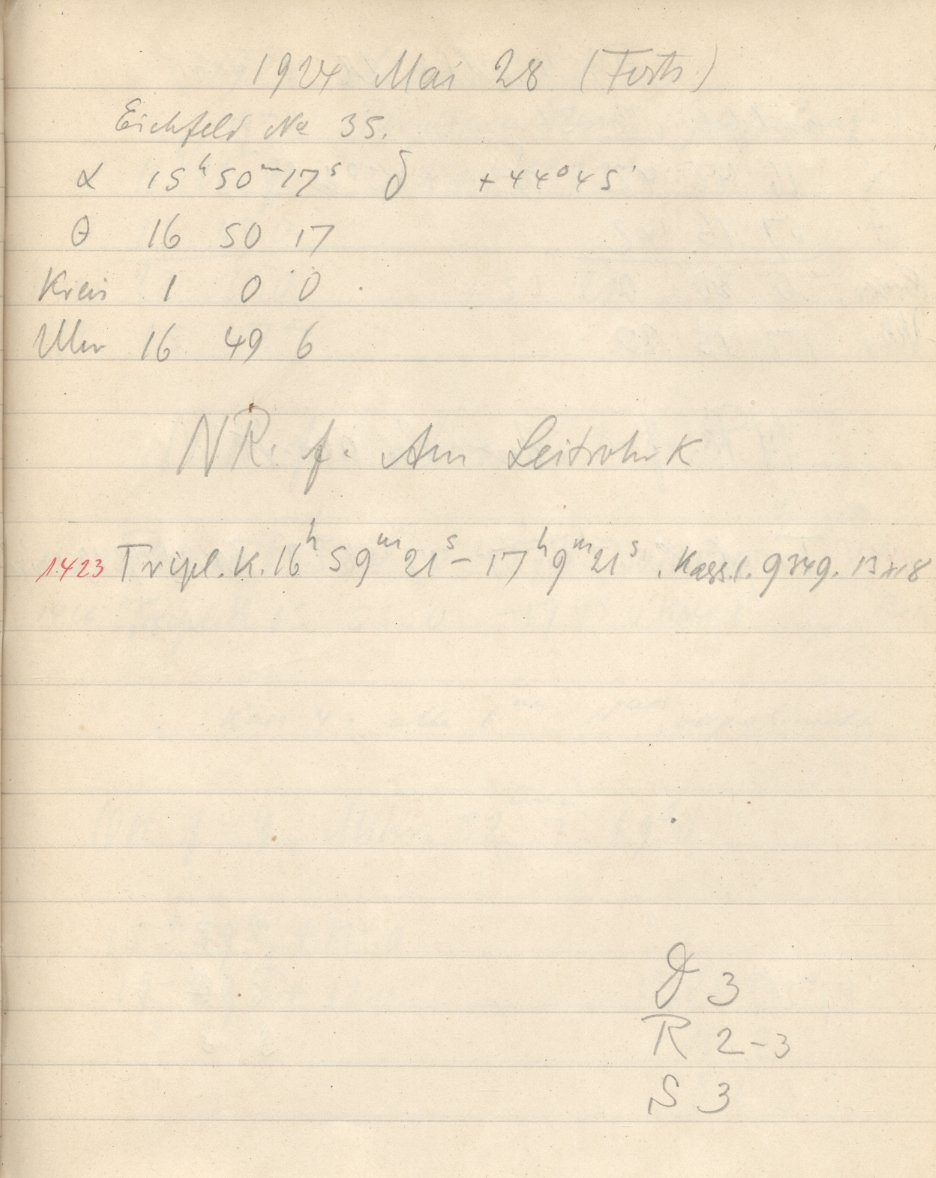 1924 Mai 28 (Forts)
Eichfeld No 35.
α 15ʰ 50ᵐ 17ˢ δ +44°45'
θ 16 50 17
Kreis 1 0 0
Uhr 16 49 6
NR. f. Am Leitrohr K
1423 Tripl. K. 16ʰ 59ᵐ 21ˢ – 17ʰ 9ᵐ 21ˢ. 9349. 13x18
D 3
R 2–3
S 3